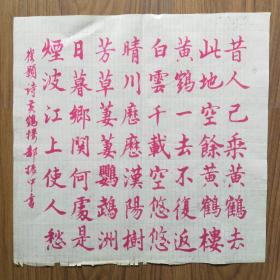 昔人已乘黃鶴去
此地空餘黃鶴樓
黃鶴一去不復返
白雲千載空悠悠
晴川歷歷漢陽樹
芳草萋萋鸚鵡洲
日暮鄉關何處是
煙波江上使人愁
崔顥詩黃鶴樓郝振中書